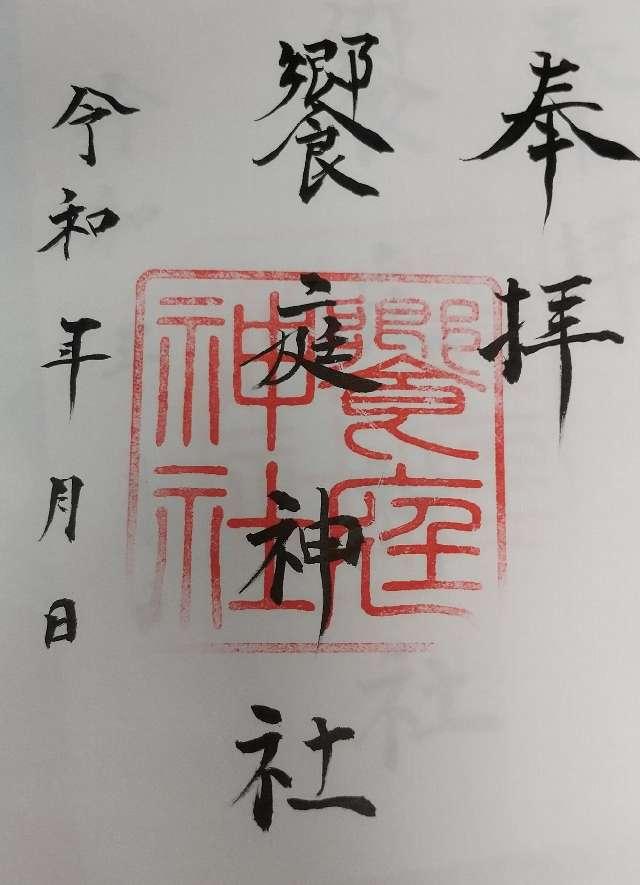 奉拝
饗庭神社
令和 年 月 日
饗庭
神社